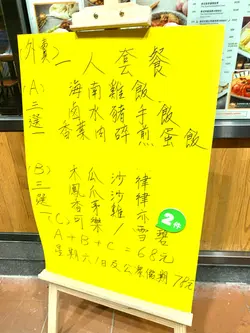 外賣
一人套餐
(A)
三選一
海南雞飯
鹵水豬手飯
香菜肉碎煎蛋飯
(B)
三選一
木瓜沙律
鳳爪沙律
香 雞亦
(C)
可樂/雪碧
A+B+C=68元
星期六、日及公眾假期 78元
2件